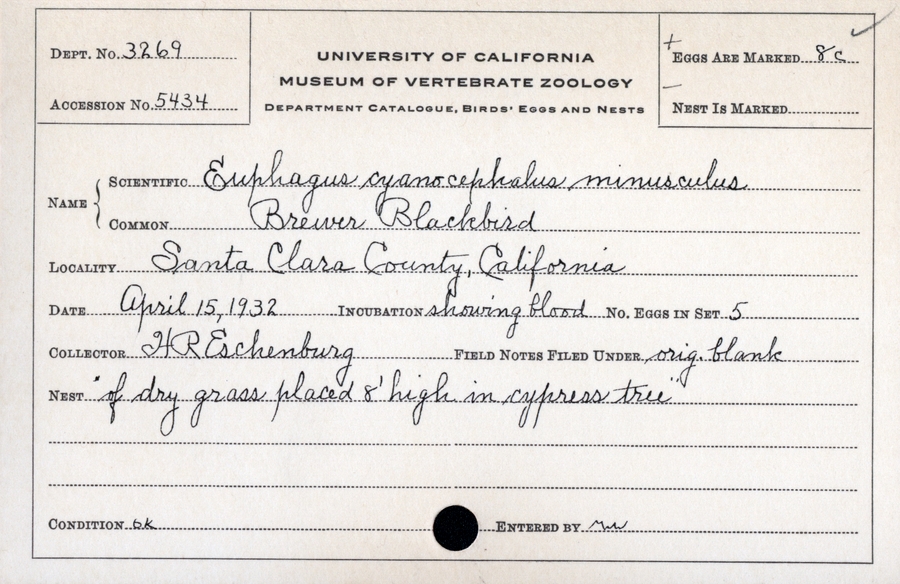 Dept. No. 3269
Accession No. 5434
UNIVERSITY OF CALIFORNIA
MUSEUM OF VERTEBRATE ZOOLOGY
Department Catalogue, Birds' Eggs and Nests
+
Eggs Are Marked 8c
—
Nest Is Marked
Name
Scientific Euphagus cyanocephalus minusculus
Common Brewer Blackbird
Locality Santa Clara County, California
Date April 15, 1932 Incubation showing blood No. Eggs in Set 5
Collector HR Eschenburg Field Notes Filed Under orig. blank
Nest "of dry grass placed 8' high in cypress tree"
Condition ok Entered by